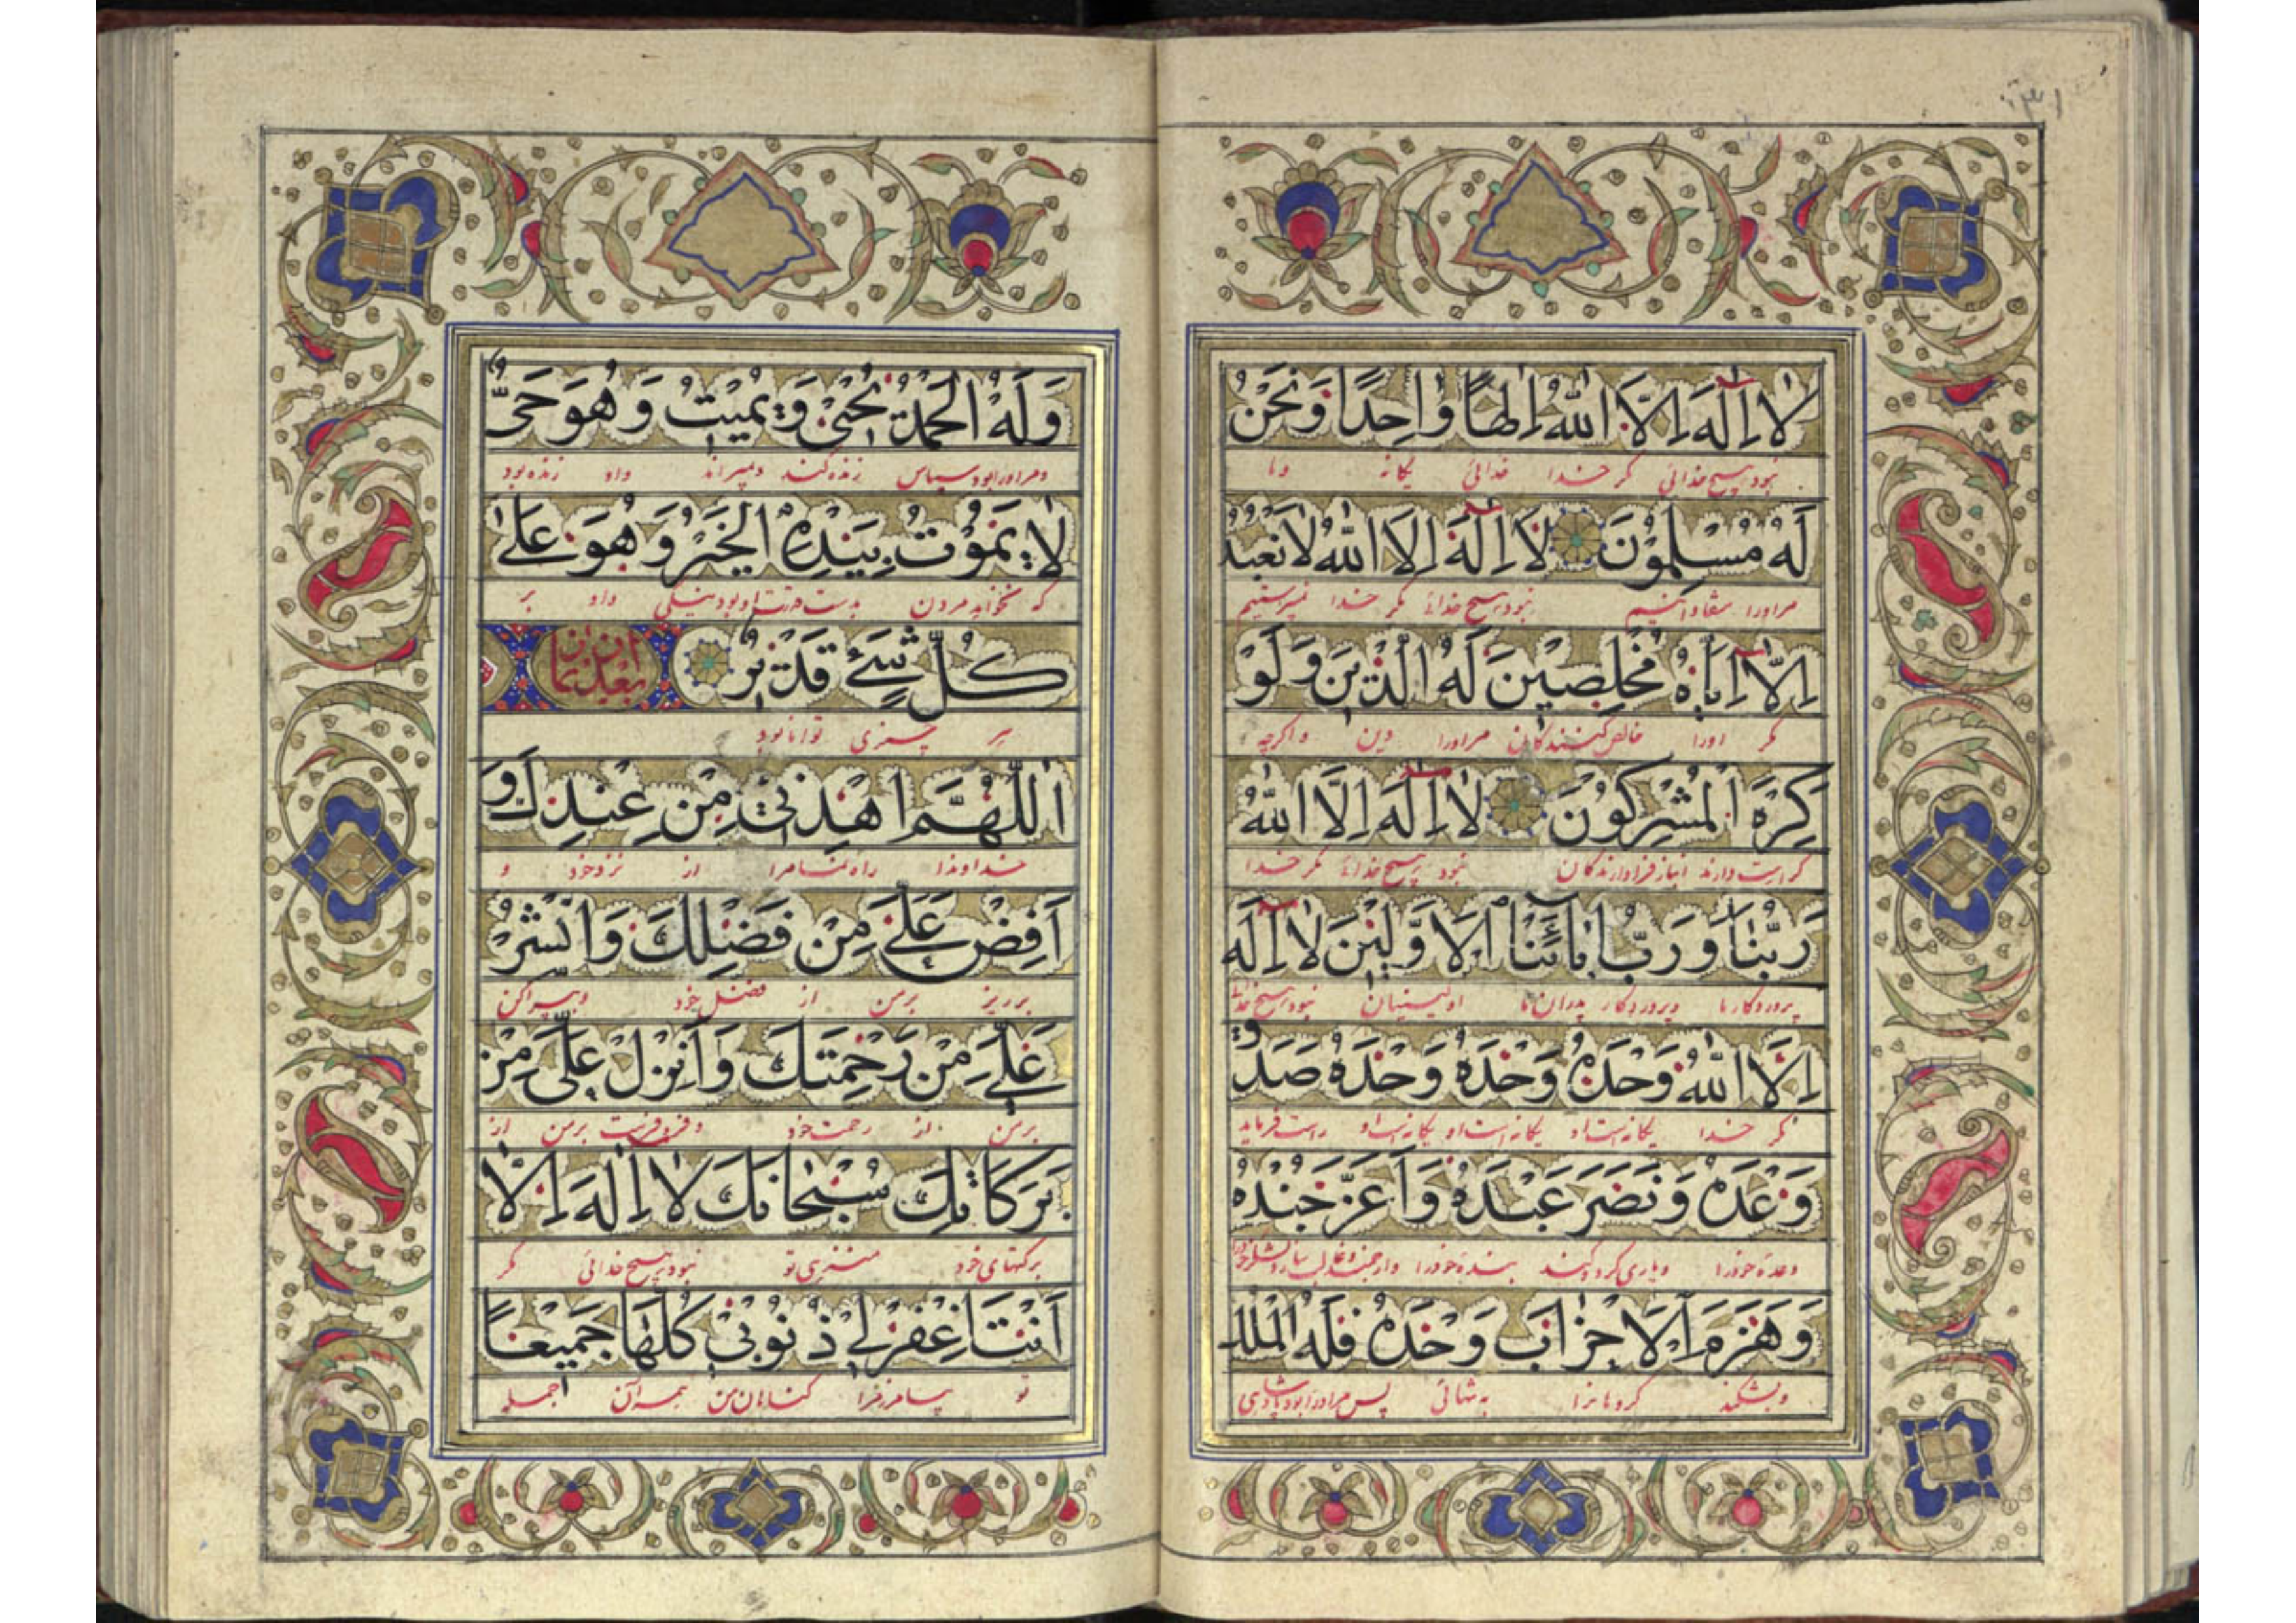 ۳۱
لا اِلٰهَ اِلَّا اللّٰهُ اِلٰهًا وٰاحِدًا وَنَحْنُ
نبود هیچ خدائی مگر خدا خدائی یگانه و ما
لَهُ مُسْلِمُوْنَ لا اِلٰهَ اِلَّا اللّٰهُ لا نَعْبُدُ
مر او را منقادانیم نبود هیچ خدائی مگر خدا نمیپرستیم
اِلّا اِيّاهُ مُخْلِصِيْنَ لَهُ الدِّيْنَ وَلَوْ
مگر او را خالص کنندگان مر او را دین و اگرچه
كَرِهَ الْمُشْرِكُوْنَ لا اِلٰهَ اِلَّا اللّٰهُ
کراهیت دارند انباز فرادارندگان نبود هیچ خدائی مگر خدا
رَبُّنا وَرَبُّ اٰبائِنَا الْاَوَّلِيْنَ لا اِلٰهَ
پروردگار ما و پروردگار پدران ما اولینیان نبود هیچ خدائی
اِلَّا اللّٰهُ وَحْدَهُ وَحْدَهُ وَحْدَهُ صَدَقَ
مگر خدا یگانه است او یگانه است او یگانه است او راست فرماید
وَعْدَهُ وَنَصَرَ عَبْدَهُ وَاَعَزَّ جُنْدَهُ
وعدهٔ خود را و یاری کرد بندهٔ خود را
وَهَزَمَ الْاَحْزابَ وَحْدَهُ فَلَهُ الْمُلْكُ
و بشکند گروهانرا به تنهائی پس مر او را بود پادشاهی
وَلَهُ الْحَمْدُ يُحْيِيْ وَيُمِيْتُ وَهُوَ حَيٌّ
و مر او را بود سپاس زنده کند و بمیراند و او زنده بود
لا يَمُوْتُ بِيَدِهِ الْخَيْرُ وَهُوَ عَلٰى
که نخواهد مردن بدست قدرت او بود نیکی و او بر
كُلِّ شَيْءٍ قَدِيْرٌ بعد از آن بخوان
هر چیزی توانا بود
اَللّٰهُمَّ اهْدِنِيْ مِنْ عِنْدِكَ وَ
خداوندا راه نما مرا از نزد خود و
اَفِضْ عَلَيَّ مِنْ فَضْلِكَ وَانْشُرْ
بریز بر من از فضل خود و بپراکن
عَلَيَّ مِنْ رَحْمَتِكَ وَاَنْزِلْ عَلَيَّ مِنْ
بر من از رحمت خود و فرو فرست بر من از
بَرَكاتِكَ سُبْحانَكَ لا اِلٰهَ اِلّا
برکتهای خود منزهی تو نبود هیچ خدائی مگر
اَنْتَ اغْفِرْ لِيْ ذُنُوْبِيْ كُلَّهَا جَمِيْعًا
تو بیامرز مرا گناهان من همه آن جمله